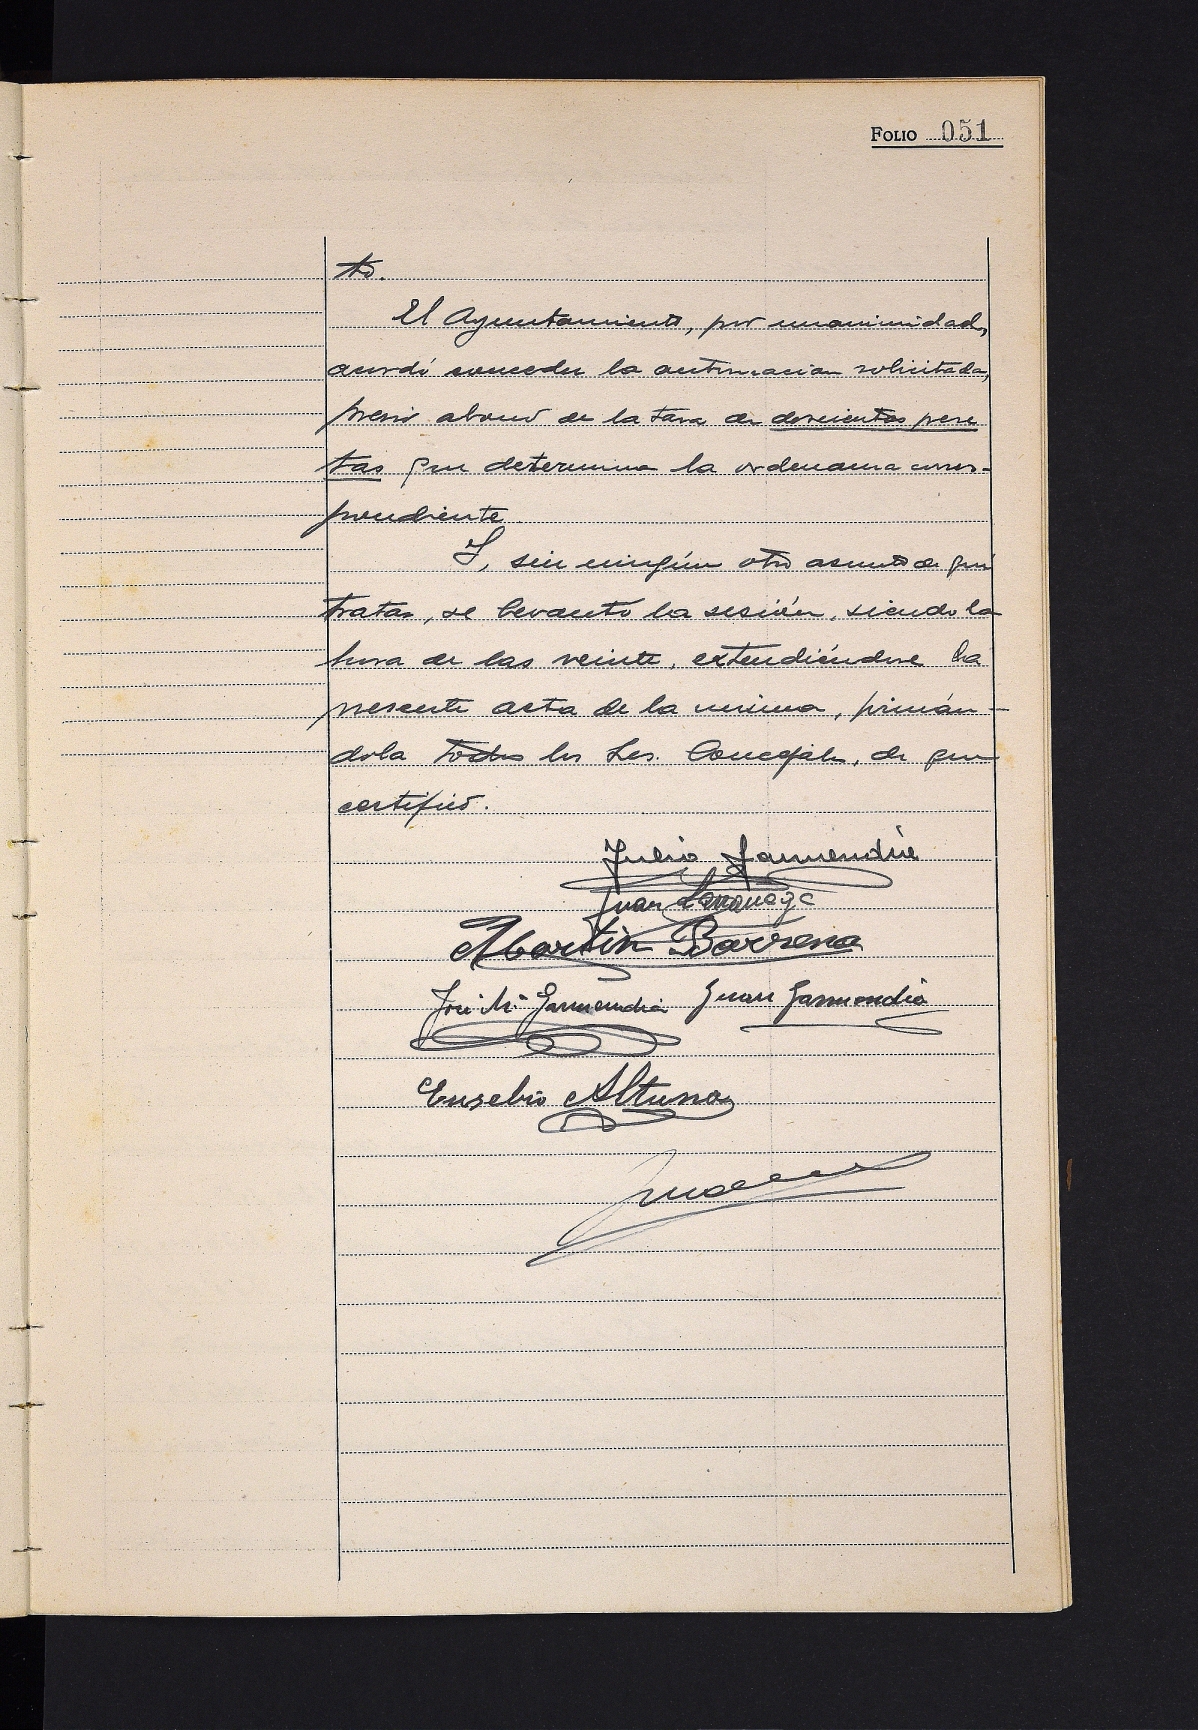 FOLIO 051
to.
El Ayuntamiento, por unanimidad,
acordó conceder la autorización solicitada,
previo abono de la tasa de doscientas pese
tas que determina la ordenanza corres-
pondiente.
Y, sin ningún otro asunto de que
tratar, se levantó la sesión, siendo la
hora de las veinte, extendiéndose la
presente acta de la misma, firmán-
dola todos los Srs. Concejales, de que
certifico.
Julio Garmendia
Juan Larrañaga
Martin Barrena
José Mª Garmendia Juan Garmendia
Eusebio Altuna